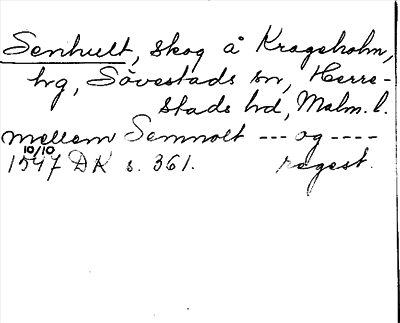 Senhult, skog å Krageholm,
hg, Sövestads sn, Herre-
stads hd, Malm. l.
mellem Semnolt --- og ----
10/10
1547 DK s. 361. regest.